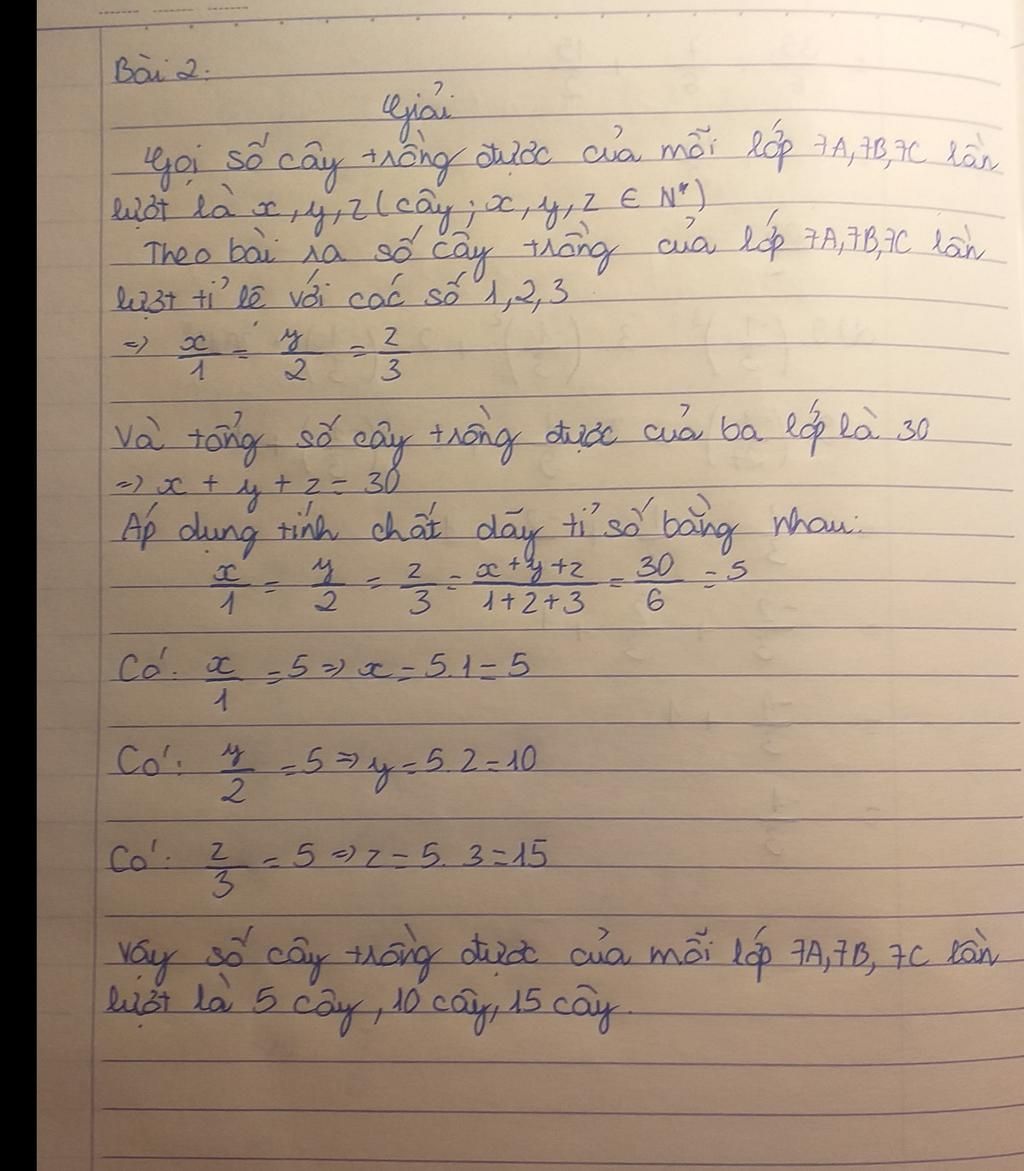 Bài 2:
Giải
Gọi số cây trồng được của mỗi lớp 7A, 7B, 7C lần
lượt là x, y, z (cây; x, y, z ∈ N*)
Theo bài ra số cây trồng của lớp 7A, 7B, 7C lần
lượt tỉ lệ với các số 1, 2, 3
=> x/1 = y/2 = z/3
Và tổng số cây trồng được của ba lớp là 30
=> x + y + z = 30
Áp dụng tính chất dãy tỉ số bằng nhau:
x/1 = y/2 = z/3 = (x+y+z)/(1+2+3) = 30/6 = 5
Có: x/1 = 5 => x = 5.1 = 5
Có: y/2 = 5 => y = 5.2 = 10
Có: z/3 = 5 => z = 5.3 = 15
Vậy số cây trồng được của mỗi lớp 7A, 7B, 7C lần
lượt là 5 cây, 10 cây, 15 cây.